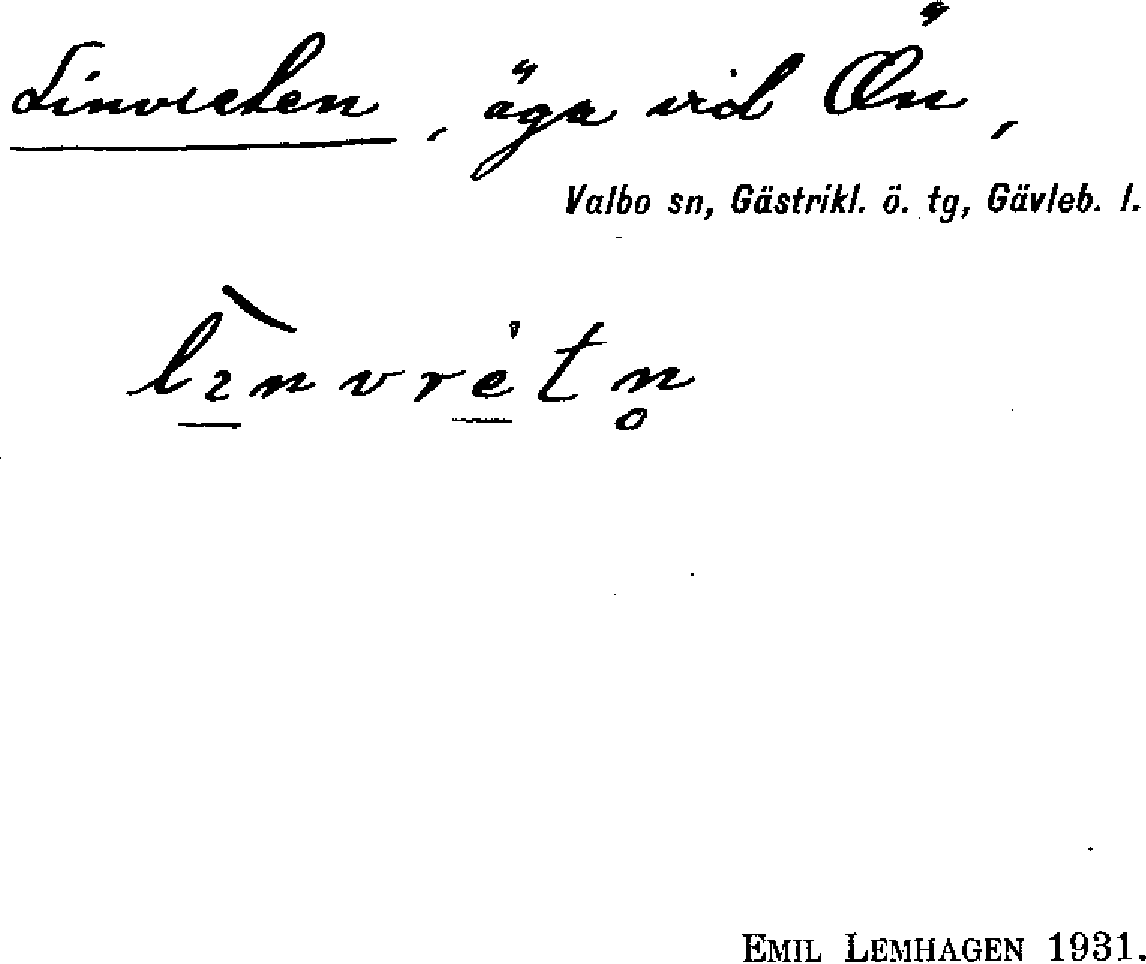 Linvreten, äga vid Ön,
Valbo sn, Gästrikl. ö. tg, Gävleb. l.
lɪ̱̀nvre̱̍tn̥
EMIL LEMHAGEN 1931.